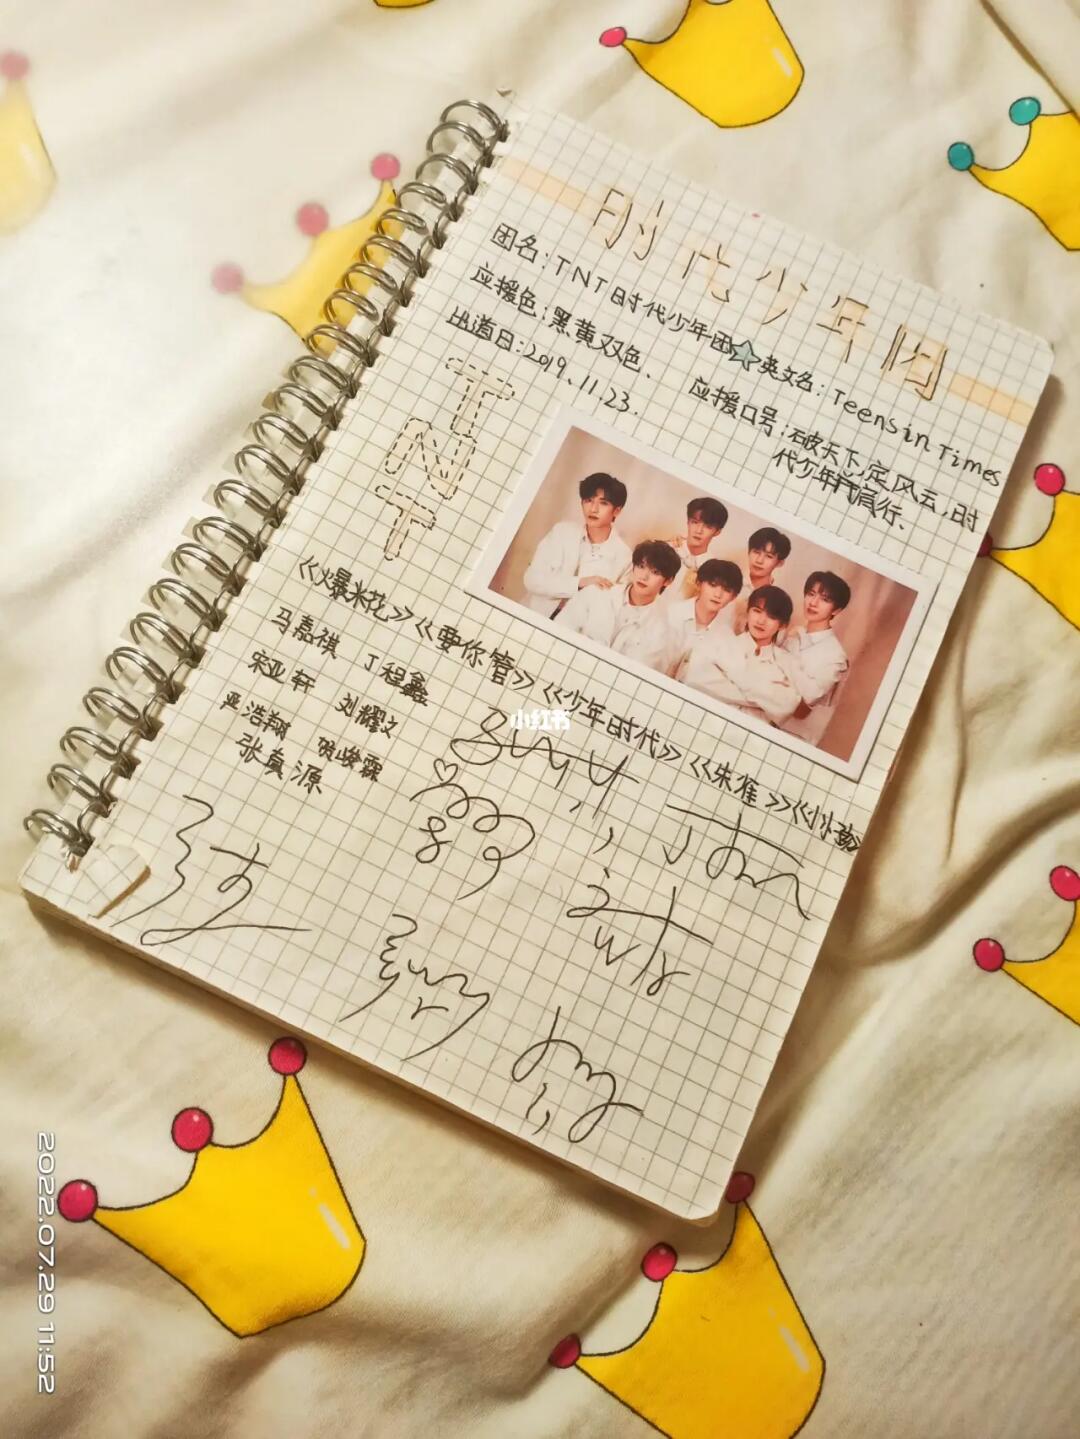 时代少年团
团名：TNT时代少年团☆英文名：Teens in Times
应援色：黑黄双色. 应援口号：破天下,定风云,时
代少年
出道日：2019.11.23.
TNT
《爆米花》《要你管》《少年时代》《朱雀》《小孩》
马嘉祺 丁程鑫
宋亚轩 刘耀文
严浩翔 贺峻霖
张真源
小红书
2022.07.29 11:52